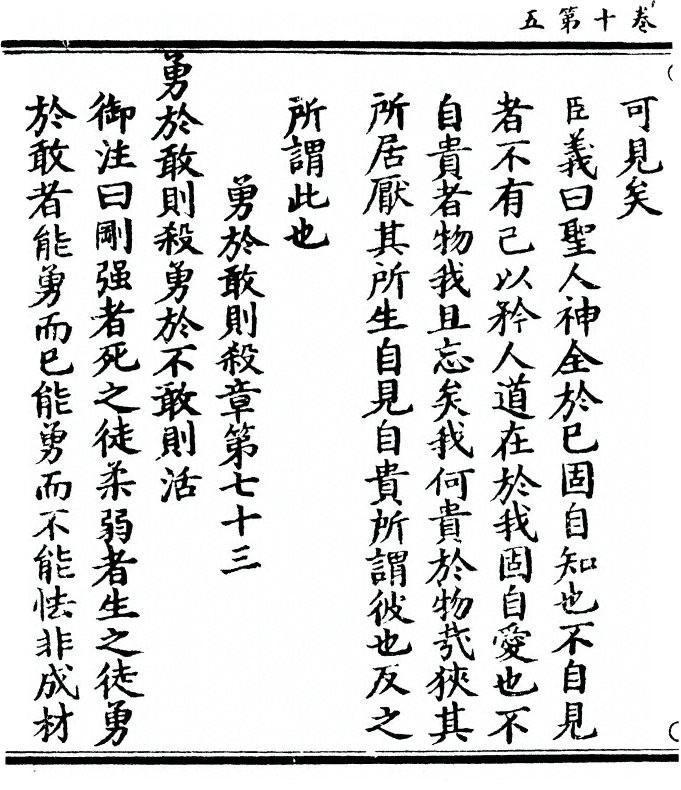 卷十第五
可見矣
臣義曰聖人神全於已固自知也不自見
者不有己以矜人道在於我固自愛也不
自貴者物我且忘矣我何貴於物㢤狹其
所居厭其所生自見自貴所謂彼也反之
所謂此也
勇於敢則殺章第七十三
勇於敢則殺勇於不敢則活
御注曰剛强者死之徒柔弱者生之徒勇
於敢者能勇而已能勇而不能怯非成材